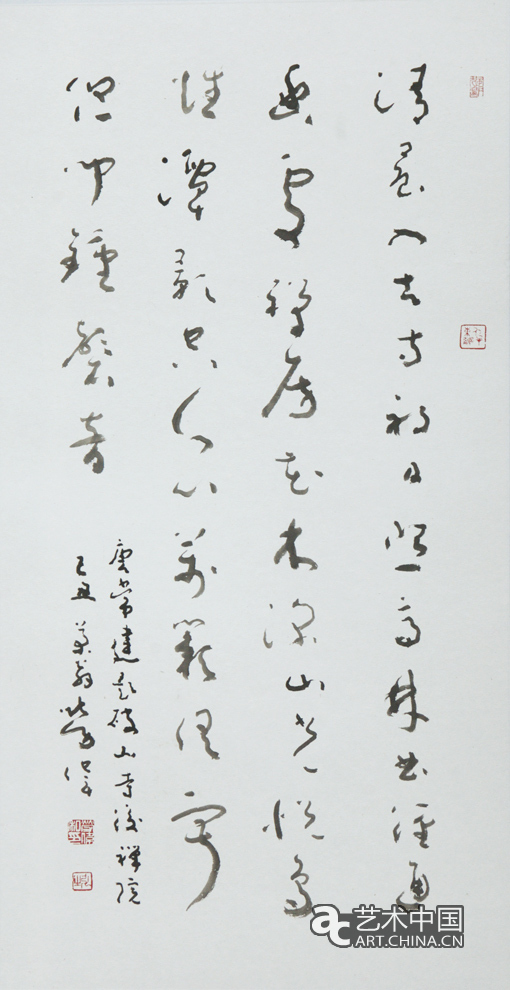 清晨入古寺初日照高林曲徑通
幽處禪房花木深山光悅鳥
性潭影空人心萬籟俱寂
但聞鐘磬音
唐常建題破山寺後禪院
己丑
艺术中国
ART.CHINA.CN